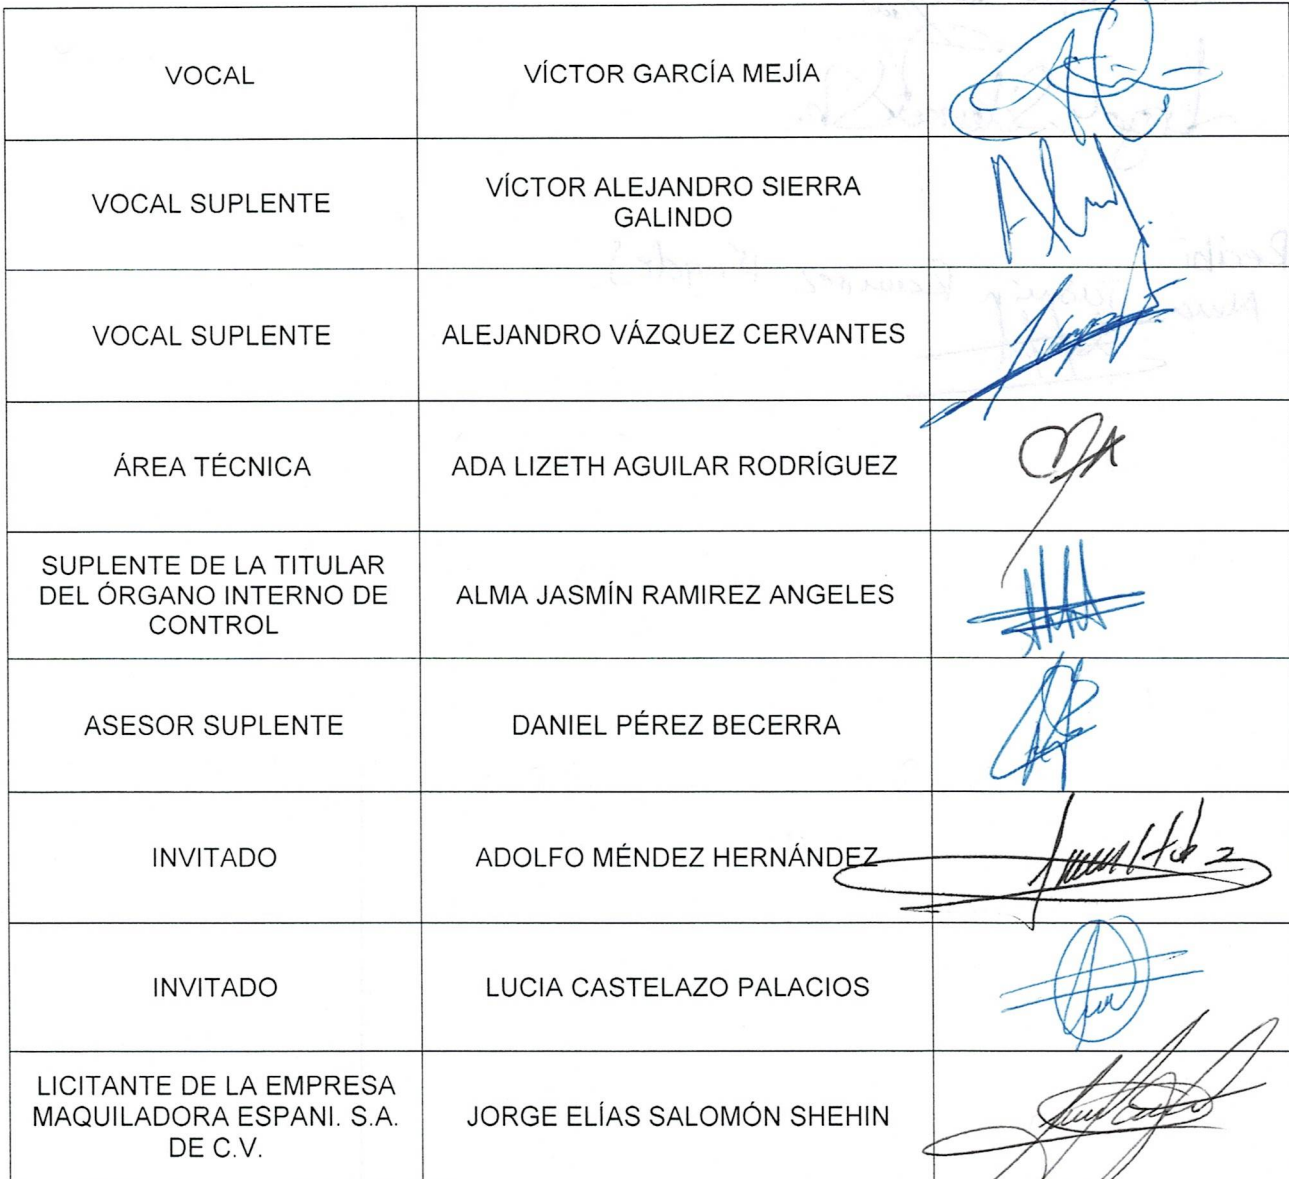 VOCAL
VÍCTOR GARCÍA MEJÍA
VOCAL SUPLENTE
VÍCTOR ALEJANDRO SIERRA
GALINDO
VOCAL SUPLENTE
ALEJANDRO VÁZQUEZ CERVANTES
ÁREA TÉCNICA
ADA LIZETH AGUILAR RODRÍGUEZ
SUPLENTE DE LA TITULAR
DEL ÓRGANO INTERNO DE
CONTROL
ALMA JASMÍN RAMIREZ ANGELES
ASESOR SUPLENTE
DANIEL PÉREZ BECERRA
INVITADO
ADOLFO MÉNDEZ HERNÁNDEZ
INVITADO
LUCIA CASTELAZO PALACIOS
LICITANTE DE LA EMPRESA
MAQUILADORA ESPANI. S.A.
DE C.V.
JORGE ELÍAS SALOMÓN SHEHIN